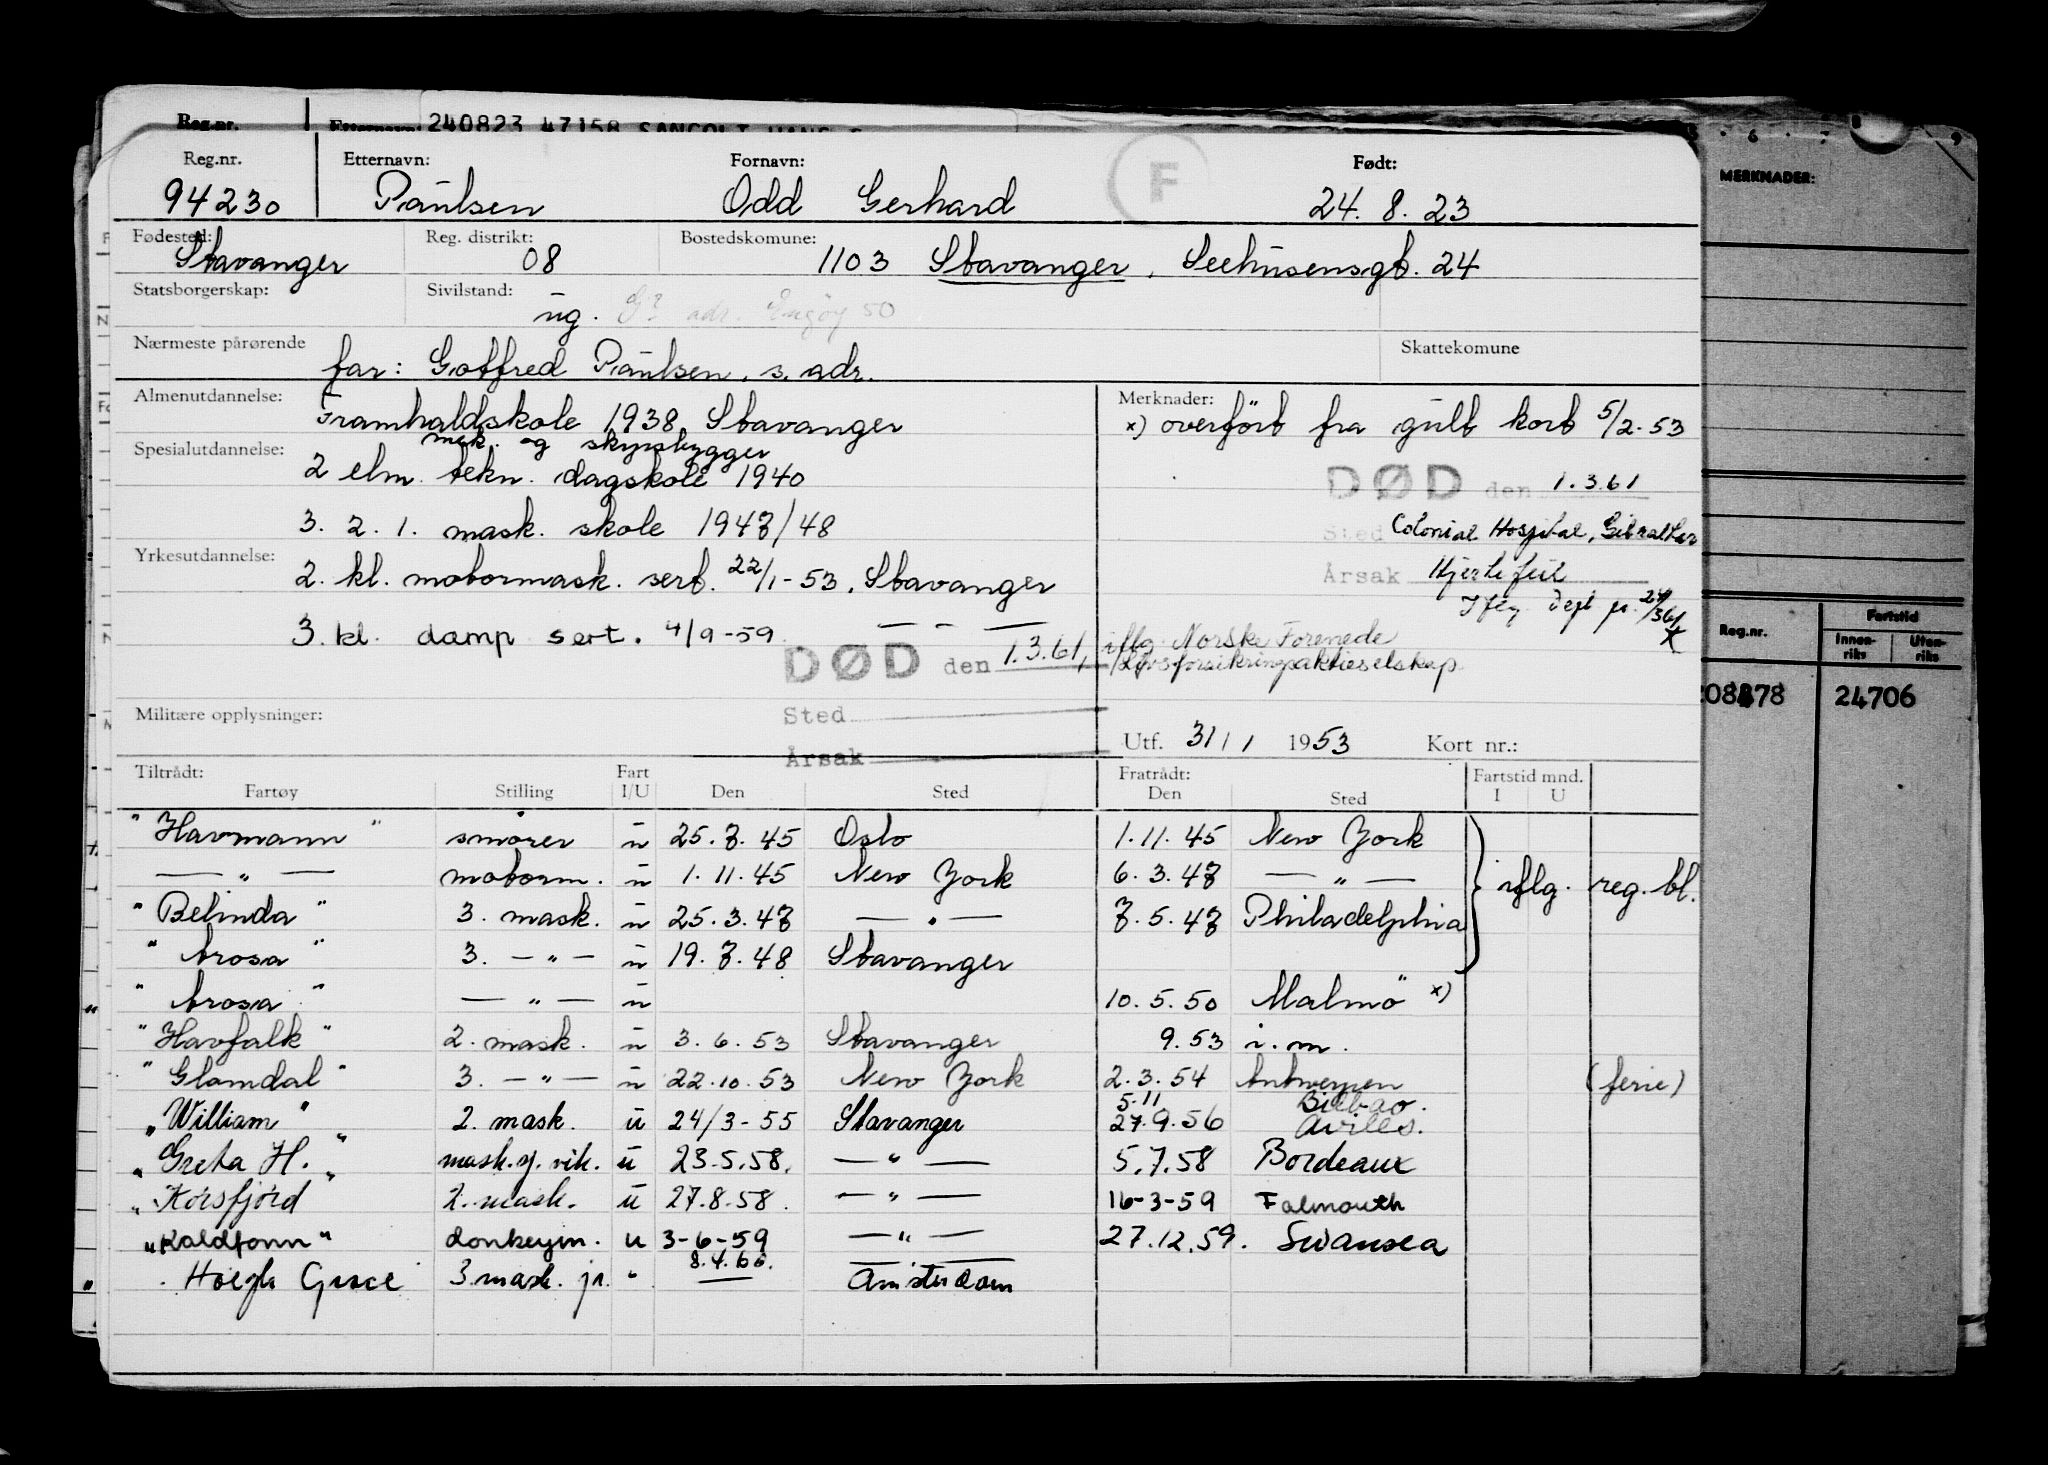 Reg.nr.
240823 47158
5 . 6 . 7 8 9
Reg.nr. Etternavn: Fornavn: F Født:
MERKNADER:
94230 Paulsen Odd Gerhard 24. 8. 23
Fødested: Reg. distrikt: Bostedskomune:
Stavanger 08 1103 Stavanger, Seehusensgt. 24
Statsborgerskap: Sivilstand:
ug. adr. Engøy 50
Nærmeste pårørende Skattekomune
far: Gottfred Paulsen, s. adr.
Almenutdannelse: Merknader:
Framhaldskole 1938 Stavanger x) overført fra gult kort 5/2-53
mek. og skipsbygger
Spesialutdannelse:
2 elm. tekn. dagskole 1940 DØD den 1.3.61
3. 2. 1. mask. skole 1947/48 Sted Colonial Hospital, Gibraltar
Yrkesutdannelse:
2. kl. motormask. sert. 22/1-53, Stavanger Årsak Hjertefeil
3. kl. damp sert. 4/9-59 — " —
DØD den 1.3.61, iflg. Norske Forenede
Livsforsikringsaktieselskap
Reg.nr. Fartstid
Innen-riks Uten-riks
24706
Militære opplysninger: Sted
Utf. 31/1 1953 Kort nr.:
Årsak
Tiltrådt: Fart Fratrådt: Fartstid mnd.
Fartøy Stilling I/U Den Sted Den Sted I U
"Havmann" smører u 25.7.45 Oslo 1.11.45 New York
— " — motorm. u 1.11.45 New York 6.3.47 — " — iflg. reg. bl.
"Belinda" 3. mask. u 25.3.47 — " — 7.5.47 Philadelphia
"Arosa" 3. — " — u 19.7.48 Stavanger
"Arosa" — " — u 10.5.50 Malmö x)
"Havfalk" 2. mask. u 3.6.53 Stavanger 9.53 i.m.
"Glomdal" 3. — " — u 22.10.53 New York 2.3.54 Antwerpen (ferie)
5.11 Bilbao.
"William" 2. mask. u 24/3-55 Stavanger 27.9.56 Aviles.
"Greta H." mask. vik. u 23.5.58. — " — 5.7.58 Bordeaux
"Korsfjord 2. mask. u 27.8.58. — " — 16-3-59 Falmouth
"Kaldfonn" donkeym. u 3-6-59 — " — 27.12.59. Swansea
8.4.60.
Høegh Grace 3. mask. jr. " — Amsterdam